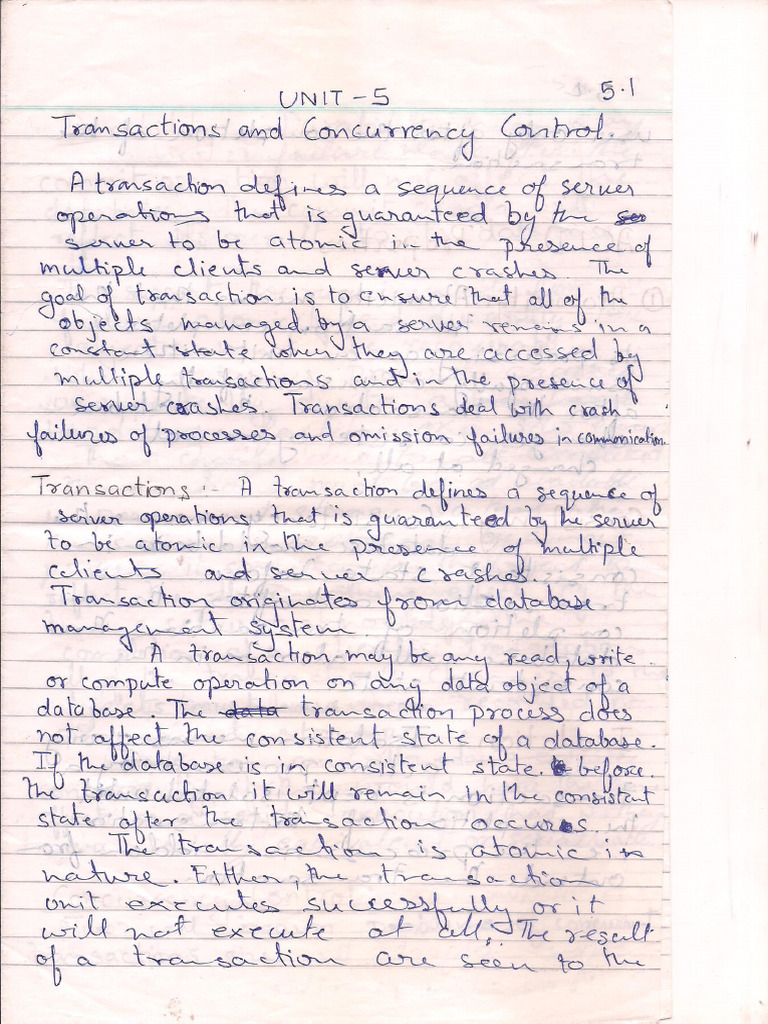 UNIT - 5
5.1
Transactions and Concurrency Control.
A transaction defines a sequence of server
operations that is guaranteed by the
server to be atomic in the presence of
multiple clients and server crashes. The
goal of transaction is to ensure that all of the
objects managed by a server remains in a
constant state when they are accessed by
multiple transactions and in the presence of
server crashes. Transactions deal with crash
failures of processes and omission failures in communication.
Transactions :- A transaction defines a sequence of
server operations that is guaranteed by he server
to be atomic in the presence of multiple
clients and server crashes.
Transaction originates from database
management system.
A transaction may be any read, write
or compute operation on any data object of a
database. The data transaction process does
not affect the consistent state of a database.
If the database is in consistent state before
the transaction it will remain in the consistent
state after the transaction occurs.
The transaction is atomic in
nature. Either, the transaction
unit executes successfully or it
will not execute at all. The result
of a transaction are seen to the